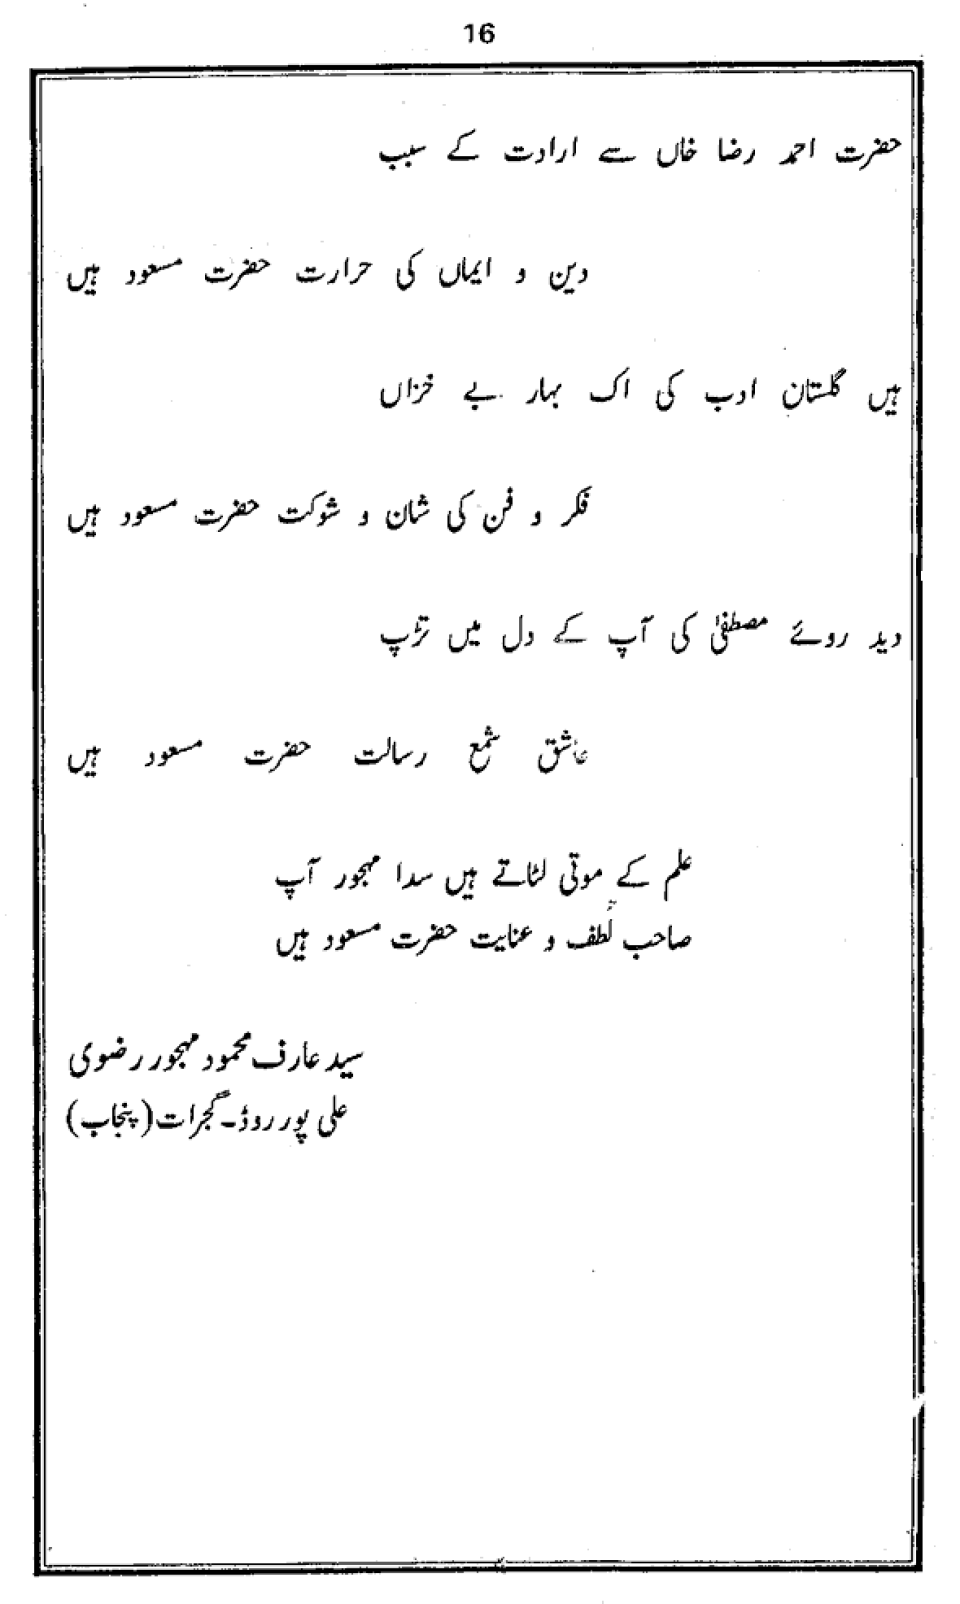 16
حضرت احمد رضا خاں سے ارادت کے سبب
دین و ایماں کی حرارت حضرت مسعود ہیں
ہیں گلستانِ ادب کی اک بہار بے خزاں
فکر و فن کی شان و شوکت حضرت مسعود ہیں
دید روئے مصطفیٰ کی آپ کے دل میں تڑپ
عاشق شمع رسالت حضرت مسعود ہیں
علم کے موتی لٹاتے ہیں سدا مہجور آپ
صاحب لُطف و عنایت حضرت مسعود ہیں
سید عارف محمود مہجور رضوی
علی پور روڈ۔ گجرات (پنجاب)